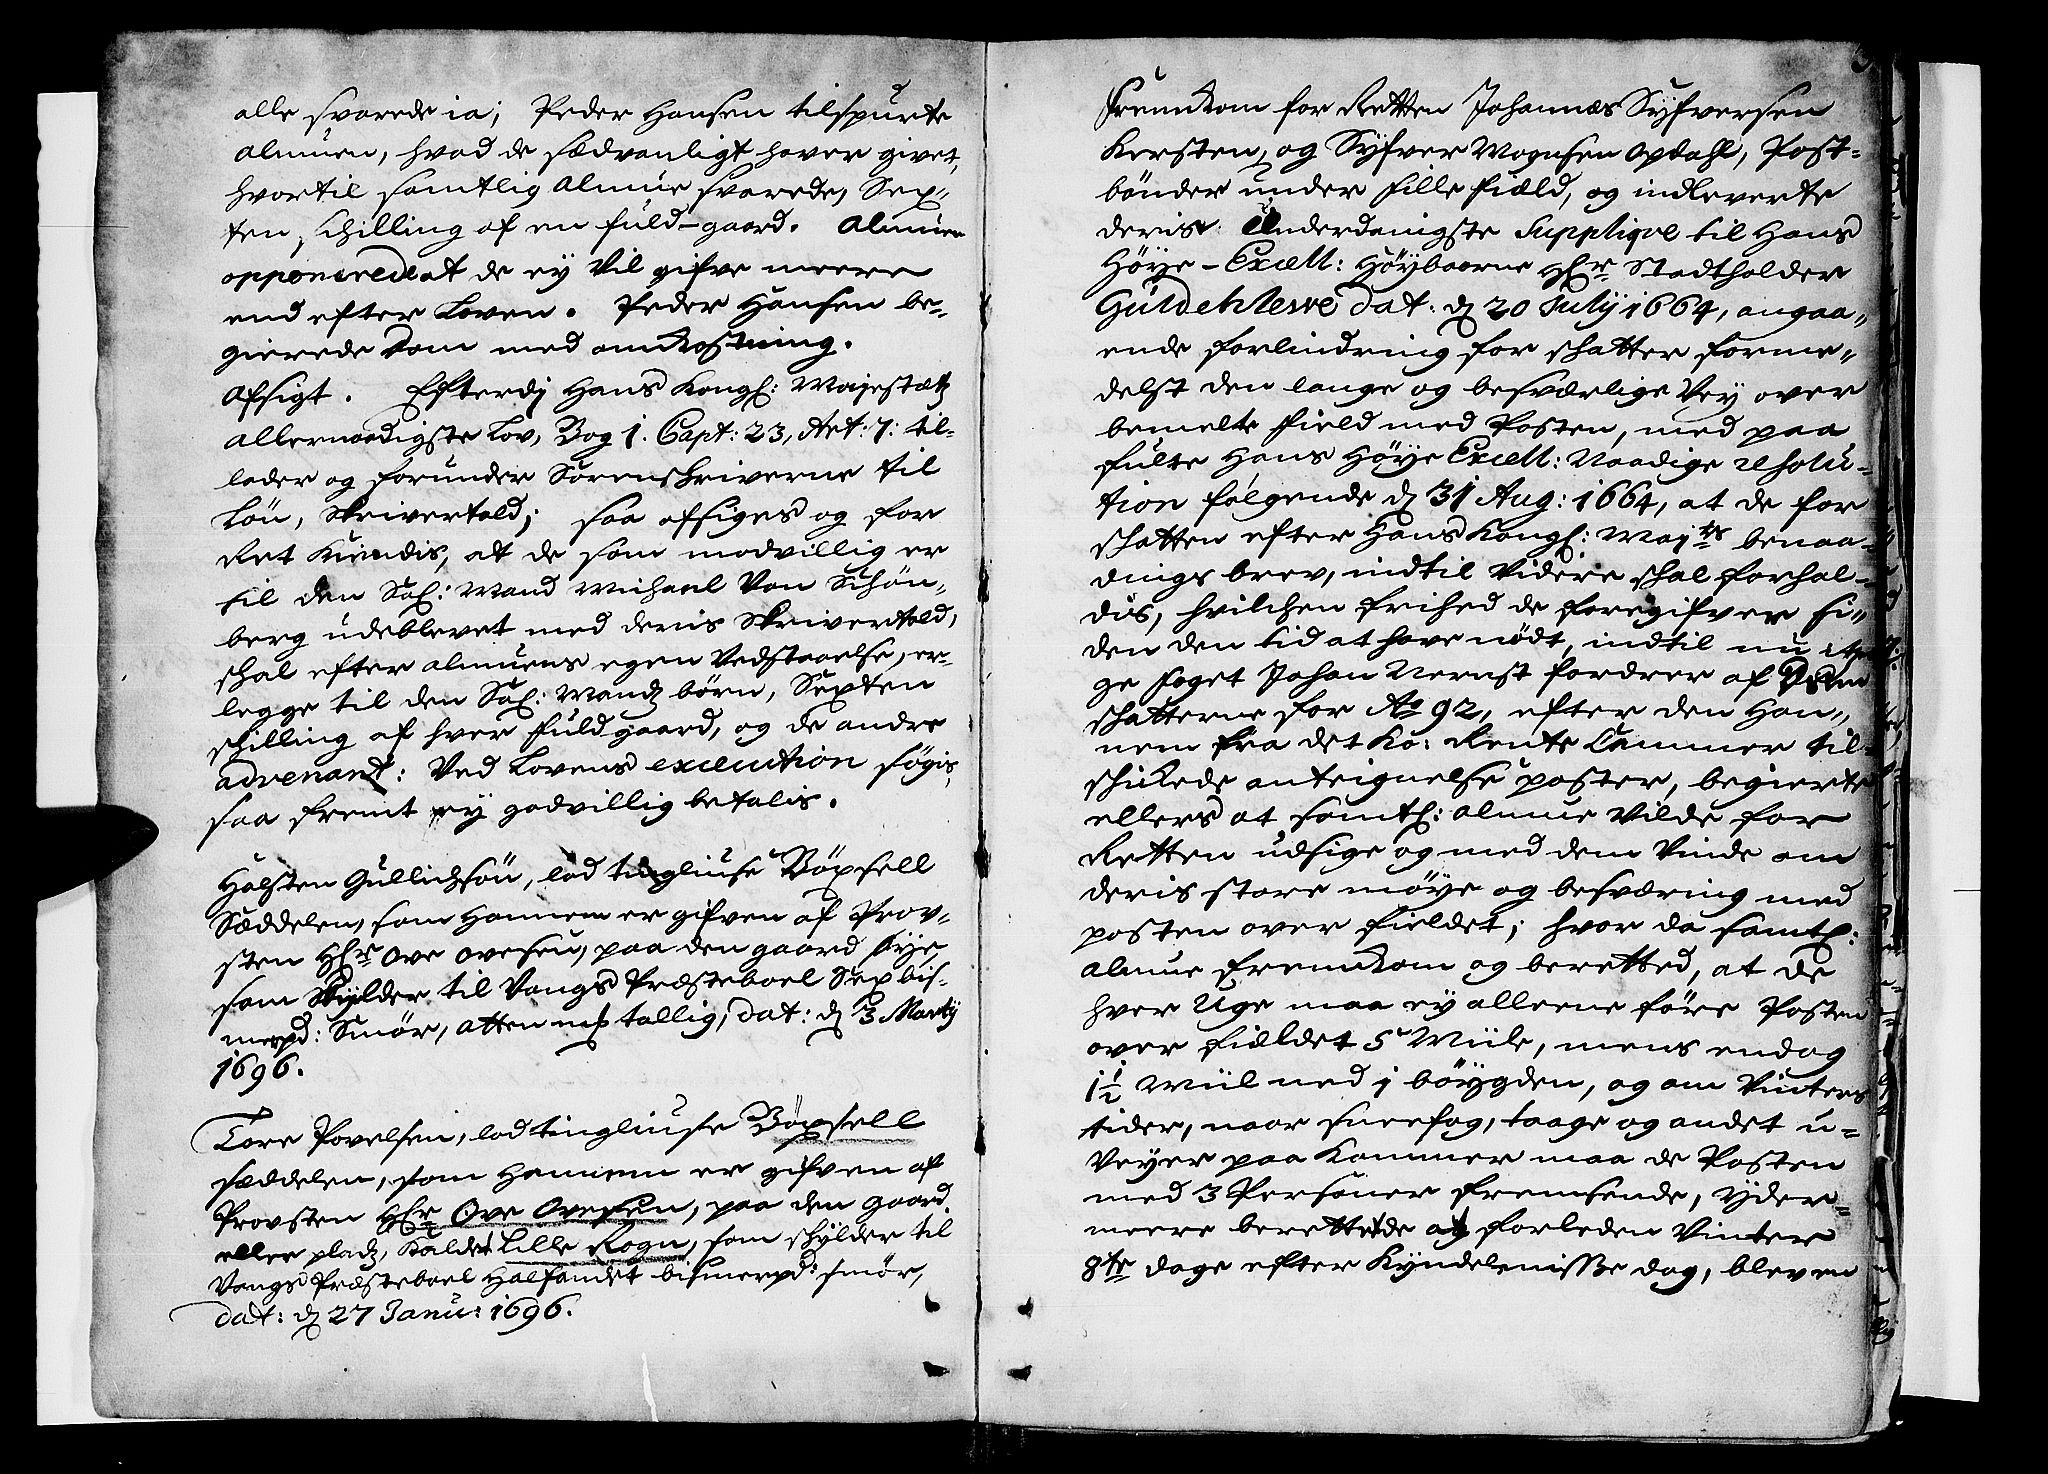 alle svarede ia; Peder Hansen tilspurte
Almuen, hvad de sædvanligt haver givet,
hvortil samtlig Almue svarede, Sex-
ten schilling af en fuld-gaard. Almuen
opponerede at de ey vil gifve meere
end efter Loven. Peder Hansen be-
gierede Dom med omkostning.
Afsigt. Efterdj Hans Kongl: Majestætz
allernaadigste Lov, Bog 1. Capt: 23, Art: 7: til-
lader og forunder Sorenschriverne til
Løn, Skrivertold; saa afsiges og for
Ret kiendis, at de som modvillig er
til den Sal: Mand Michael Von Schön-
berg udeblevet med deris Skrivertold,
schal efter almuens egen Vedstaaelse, er-
legge til den Sal: Mandz børn, Sexten
schilling af hver fuldgaard, og de andre
advenant: Ved Lovens execution søgis,
saa fremt ey godvillig betalis.
Halsten Gullichsøn, lod tingliuse Böxsell
Sæddelen, som Hannem er gifven af Prov-
sten Hr Ove Ovesen, paa den gaard Kye,
som Skylder til Vangs Præsteboel Sex bis-
merpd: Smør, atten mk tallig, dat: d 3 Martij
1696.
Tore Povelsen, lod tingliuse Böxsell
sæddelen, som Hannem er gifven af
Provsten Hr Ove Ovesen, paa den gaard
eller pladz, kaldet Lille Rogn, som schylder til
Vangs Præsteboel Halfandet bismerpd: smør,
dat: d 27 Janu: 1696.
Fremkom for Retten Johannes Syfversen
Kersten, og Syfver Mognsen Opdahl, Post-
bönder under Fille Fiæld, og indleverte
deris Underdanigste Supplique til Hans
Høye-Excell: Höybaarne Hr Stadtholder
Güldenlewe dat: d 20 Julij 1664, angaa-
ende forlindring for schatter forme-
delst den lange og besværlige Vey over
bemelte Field med Posten, med paa
fulte Hans Høye Excell: Naadige resolu-
tion følgende d 31 Aug: 1664, at de for
schatten efter Hans Kongl: Majts benaa-
dings brev, indtil Videre schal forhol-
dis, hvilchen frihed de foregifver si-
den den tid at have nødt, indtil nu
ge foget Johan Nernst fordrer af Dem
schatterne for Ao 92, efter den Han-
nem fra det Ko: Rente Cammer til-
schikede anteignelse poster, begierte
ellers at samtl: almue Vilde for
Retten udsige og med dem Vinde om
deris store møye og besværing med
posten over fieldet; hvor da samtl:
almue fremkom og beretted, at de
hver Uge maa ey alleene føre Posten
over fieldet 5 Miile, mens endog
1 1/2 Miil ned j böygden, og om Vinters
tider, naar sneefog, taage og andet u-
Veyer paa kommer maa de Posten
med 3 Personer fremsende, yder-
meere berettede at forleden Vinter
8te dage efter Kyndelmisse dag, bleven